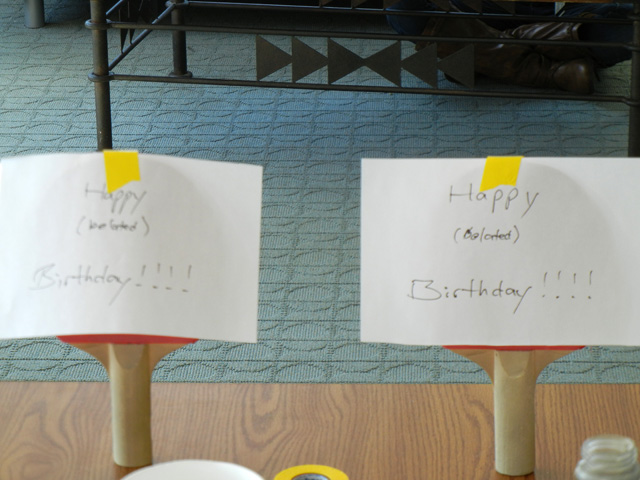 Happy
(belated)
Birthday!!!!
Happy
(belated)
Birthday!!!!